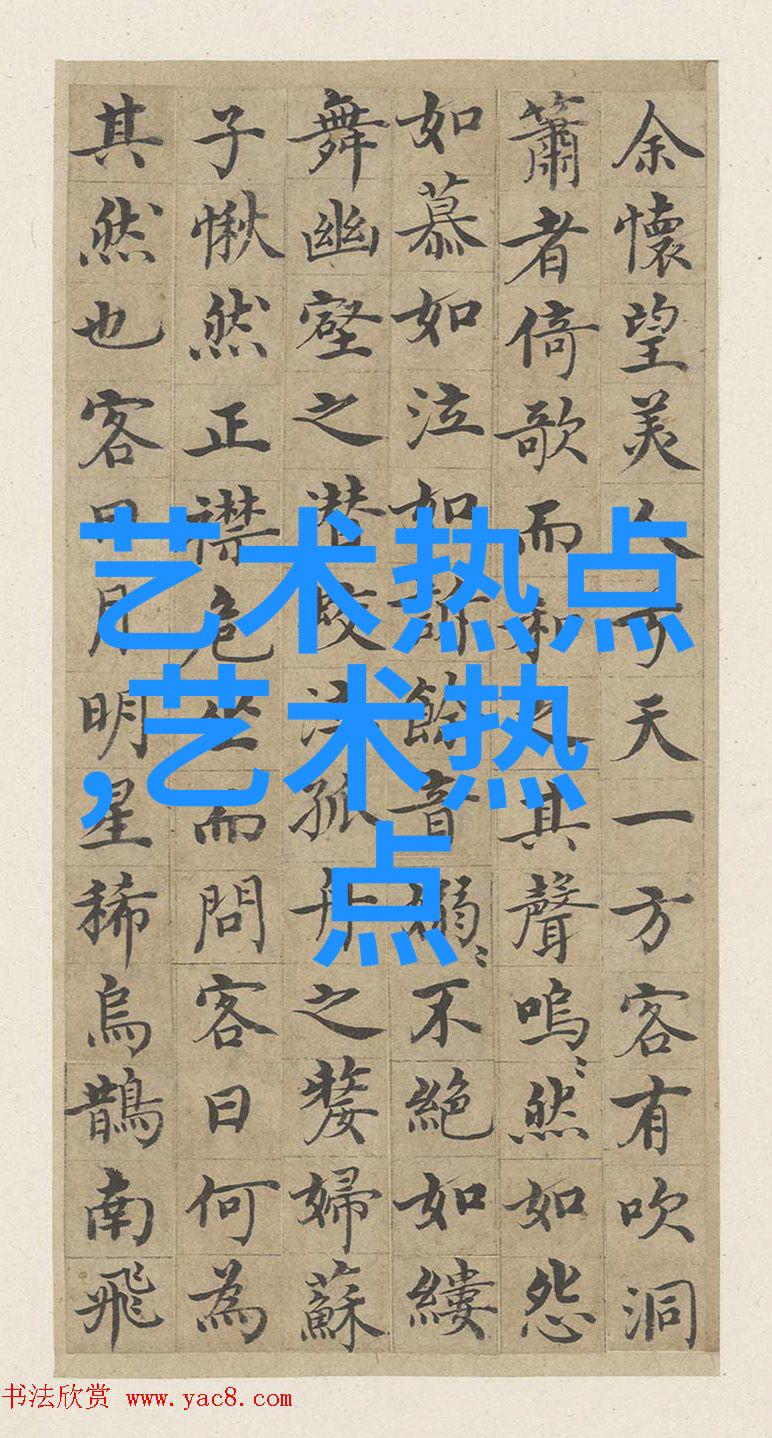 余懷望美人兮天一方客有吹洞
簫者倚歌而和之其聲嗚〻然如怨
如慕如泣如訴餘音嫋〻不絕如縷
舞幽壑之潛蛟泣孤舟之嫠婦蘇
子愀然正襟危坐而問客曰何為
其然也客曰月明星稀烏鵲南飛
艺术热点
,艺术热
点
书法欣赏 www.yac8.com